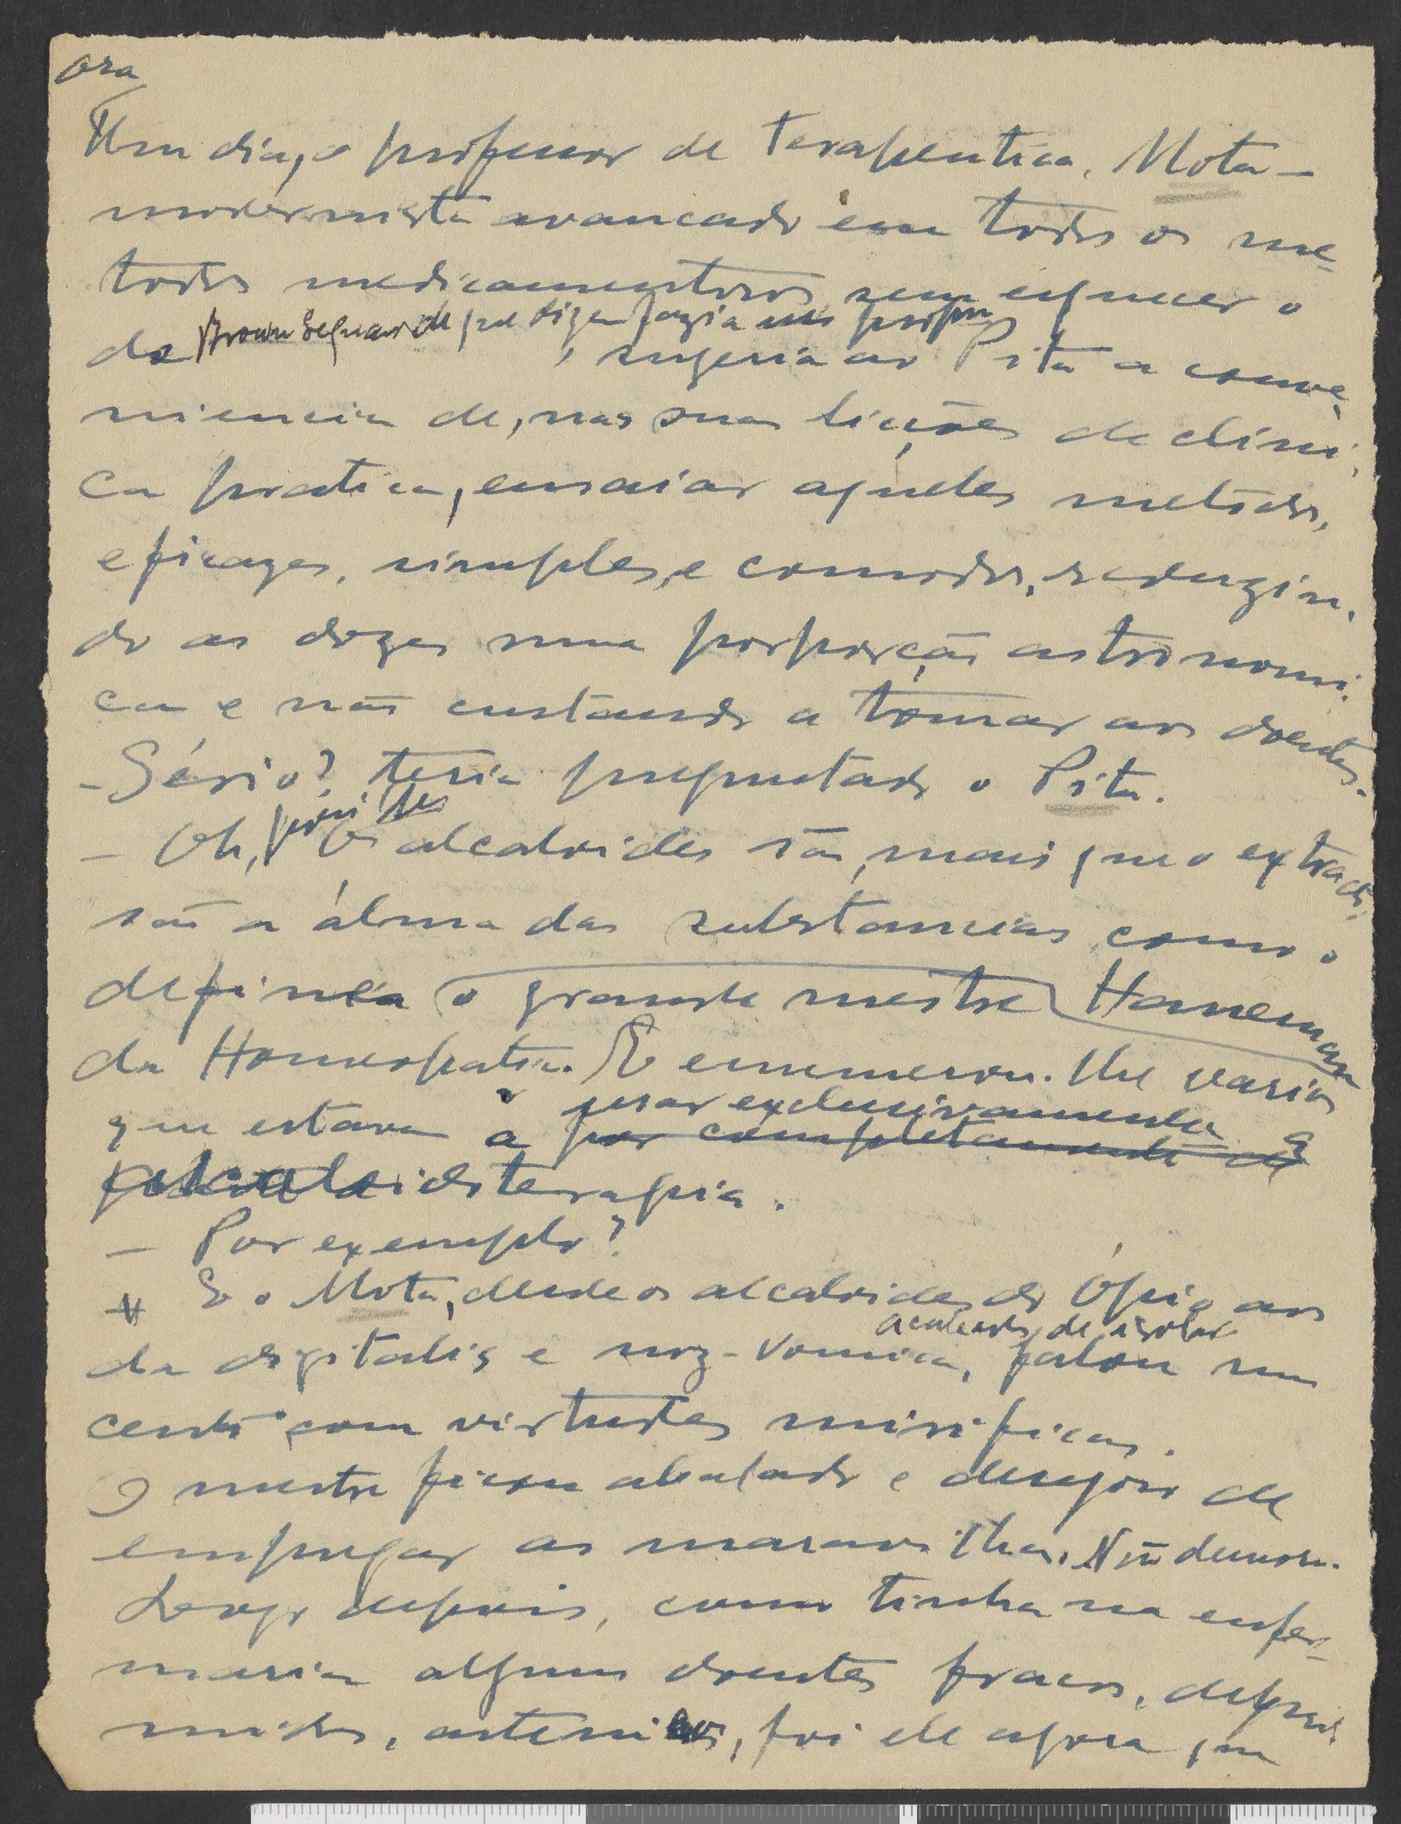 Ora
Um dia, o professor de terapeutica, Mota —
modernista avancado em todos os me-
todos medicamentosos sem esquecer o
de Brown Sequard que dizia fazia uso proprio
, sugeria ao Pita a conve-
niencia de, nas suas licções de clini-
ca pratica, ensaiar aqueles metodos,
eficazes, simples, e comodos, reduzin-
do as dozes numa porporção astronomi-
ca e não custando a tomar aos doentes.
— Sério? teria preguntado o Pita.
— Oh, pois Os alcaloides são, mais que o extracto,
são a álma das substancias como o
definia o grande mestre Haneman
da Homeopatia. E enumerou-lhe varios
que estava a usar exclusivamente a
por completamente da
alcaloidoterapia.
— Por exemplo?
E o Mota, desde os alcaloides do Ópio aos
acabados de isolar
da digitalis e noz-vomica, falou num
cento com virtudes mirificas.
O mestre ficou abalado e desejoso de
empregar as maravilhas. Não demorou.
Logo depois, como tinha na enfer-
maria alguns doentes fracos, depri-
midos, astenicos, foi ele agora que